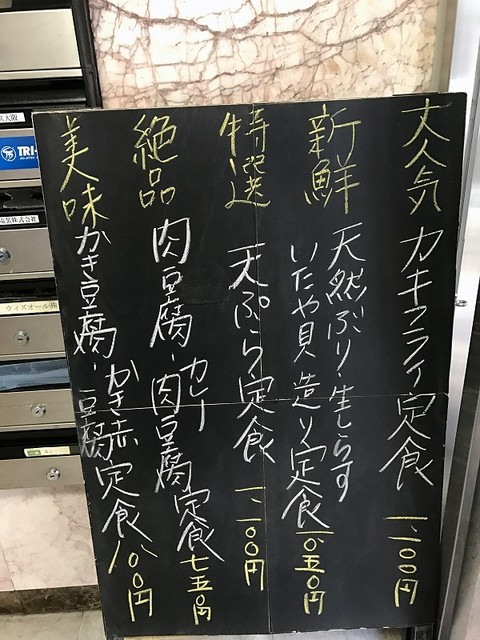 大人気
カキフライ定食
一、一00円
新鮮
天然ぶり・生しらす
いたや貝 造り定食
一0五0円
特選
天ぷら定食
一、一00円
絶品
肉豆腐・カレー
肉豆腐定食
七五0円
美味
かき豆腐・かき赤
豆腐定食
八00円
大阪
TRI-
式会社
ウィズオール